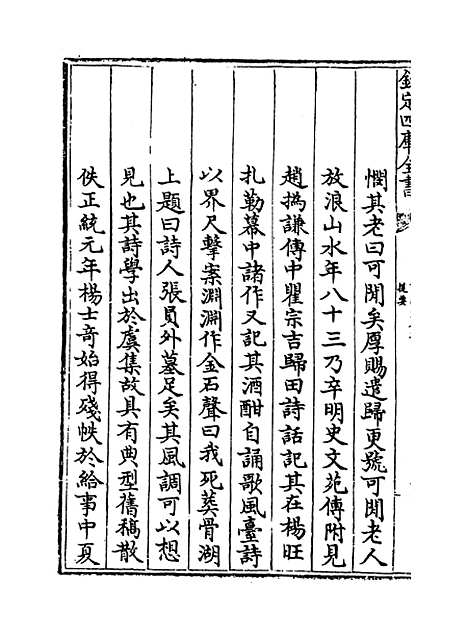 欽定四庫全書
提要
憫其老曰可閒矣厚賜遣歸更號可閒老人
放浪山水年八十三乃卒明史文苑傳附見
趙撝謙傳中瞿宗吉歸田詩話記其在楊旺
扎勒幕中諸作又記其酒酣自誦歌風臺詩
以界尺擊案淵淵作金石聲曰我死葬骨湖
上題曰詩人張員外墓足矣其風調可以想
見也其詩學出於虞集故具有典型舊稿散
佚正統元年楊士奇始得殘帙於給事中夏